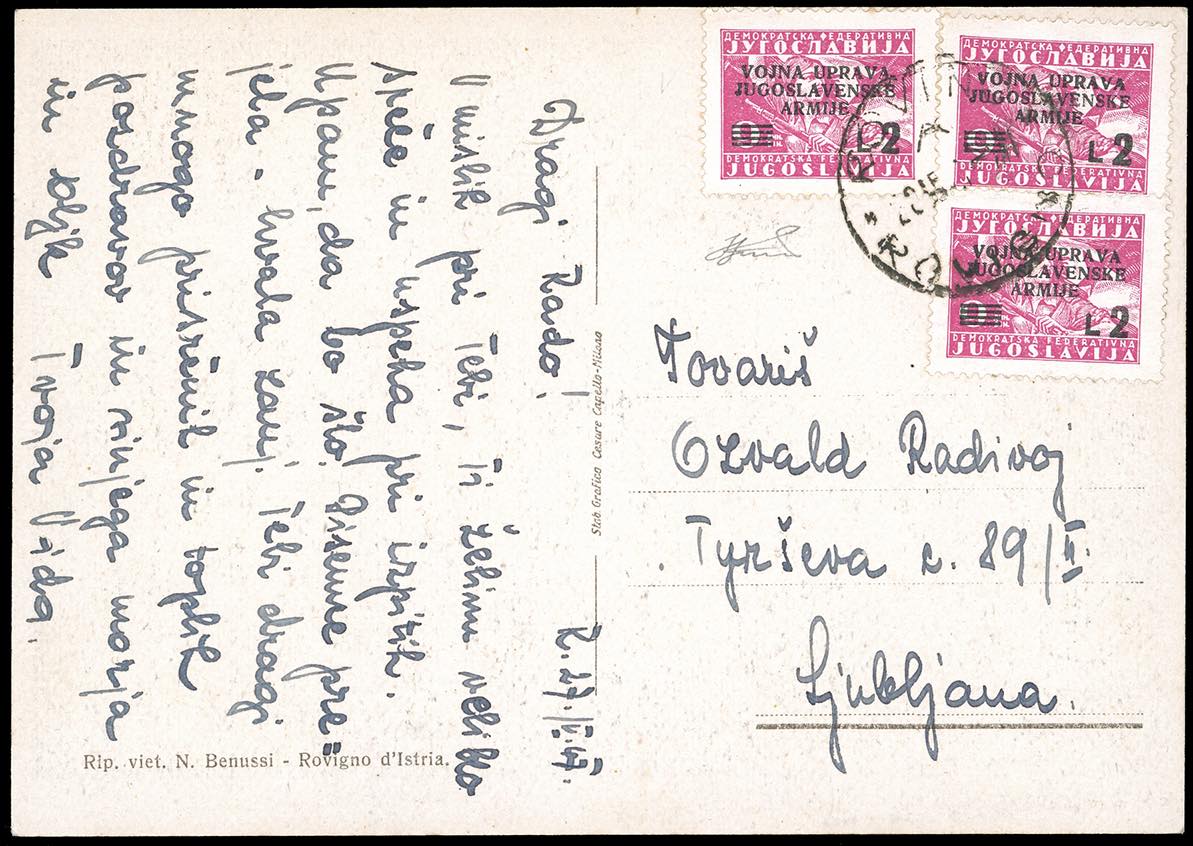 R. 27./IV. 47.
Dragi Rado!
V mislih pri Tebi, Ti želimo veliko
sreče in uspeha pri izpitih.
Upam, da bo šlo. Pismo pre=
jela - hvala zanj. Tebi dragi
mnogo prisrčnih in toplih
pozdravov in sinjega morja
in oljk Tvoja Vida.
Rip. viet. N. Benussi - Rovigno d'Istria.
Stab. Grafico Cesare Capello-Milano
ДЕМОКРАТСКА ФЕДЕРАТИВНА
ЈУГОСЛАВИЈА
VOJNA UPRAVA
JUGOSLAVENSKE
ARMIJE
L 2
DEMOKRATSKA FEDERATIVNA
JUGOSLAVIJA
ДЕМОКРАТСКА ФЕДЕРАТИВНА
ЈУГОСЛАВИЈА
VOJNA UPRAVA
JUGOSLAVENSKE
ARMIJE
L 2
DEMOKRATSKA FEDERATIVNA
JUGOSLAVIJA
ДЕМОКРАТСКА ФЕДЕРАТИВНА
ЈУГОСЛАВИЈА
VOJNA UPRAVA
JUGOSLAVENSKE
ARMIJE
L 2
DEMOKRATSKA FEDERATIVNA
JUGOSLAVIJA
Tovariš
Ozvald Radivoj
Tyrševa c. 89/II.
Ljubljana.